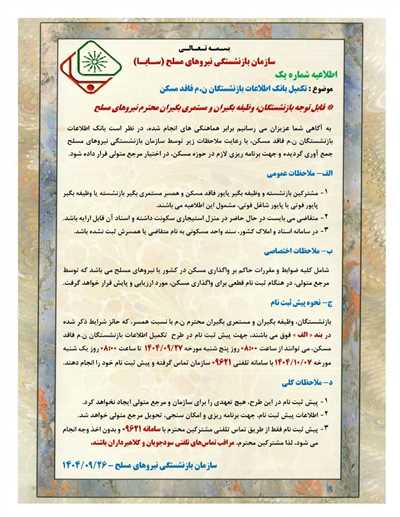 بسمه تعالی
سازمان بازنشستگی نیروهای مسلح (ساپا)
اطلاعیه شماره یک
موضوع : تکمیل بانک اطلاعات بازنشستگان ن.م فاقد مسکن
* قابل توجه بازنشستگان، وظیفه بگیران و مستمری بگیران محترم نیروهای مسلح
به آگاهی شما عزیزان می رسانیم برابر هماهنگی های انجام شده، در نظر است بانک اطلاعات
بازنشستگان ن.م فاقد مسکن، با رعایت ملاحظات زیر توسط سازمان بازنشستگی نیروهای مسلح
جمع آوری گردیده و جهت برنامه ریزی لازم در حوزه مسکن، در اختیار مرجع متولی قرار داده شود.
الف- ملاحظات عمومی
۱- مشترکین بازنشسته و وظیفه بگیر پایور فاقد مسکن و همسر مستمری بگیر بازنشسته یا وظیفه بگیر
پایور فوتی یا پایور شاغل فوتی، مشمول این اطلاعیه می باشند.
۲- متقاضی می بایست در حال حاضر در منزل استیجاری سکونت داشته و اسناد آن قابل ارایه باشد.
۳- در سامانه اسناد و املاک کشور، سند واحد مسکونی به نام متقاضی یا همسرش ثبت نشده باشد.
ب- ملاحظات اختصاصی
شامل کلیه ضوابط و مقررات حاکم بر واگذاری مسکن در کشور یا نیروهای مسلح می باشد که توسط
مرجع متولی، در هنگام ثبت نام قطعی برای واگذاری مسکن، مورد ارزیابی و پایش قرار خواهد گرفت.
ج- نحوه پیش ثبت نام
بازنشستگان، وظیفه بگیران و مستمری بگیران محترم ن.م با نسبت همسر، که حائز شرایط ذکر شده
در بند « الف » فوق می باشند، جهت پیش ثبت نام در طرح تکمیل اطلاعات بازنشستگان ن.م فاقد
مسکن، می توانند از ساعت ۰۸:۰۰ روز پنج شنبه مورخه ۱۴۰۴/۰۹/۲۷ تا ساعت ۰۸:۰۰ روز یک شنبه
مورخه ۱۴۰۴/۱۰/۰۷ با سامانه تلفنی ۰۹۶۲۱ سازمان تماس گرفته و پیش ثبت نام خود را انجام دهند.
د- ملاحظات کلی
۱- پیش ثبت نام در این طرح، هیچ تعهدی را برای سازمان و مرجع متولی ایجاد نخواهد کرد.
۲- اطلاعات پیش ثبت نام، جهت برنامه ریزی و امکان سنجی، تحویل مرجع متولی خواهد شد.
۳- پیش ثبت نام فقط از طریق تماس تلفنی مشترکین محترم با سامانه ۰۹۶۲۱ و بدون اخذ وجه انجام
می شود. لذا مشترکین محترم، مراقب تماس‌های تلفنی سودجویان و کلاهبرداران باشند.
سازمان بازنشستگی نیروهای مسلح - ۱۴۰۴/۰۹/۲۶